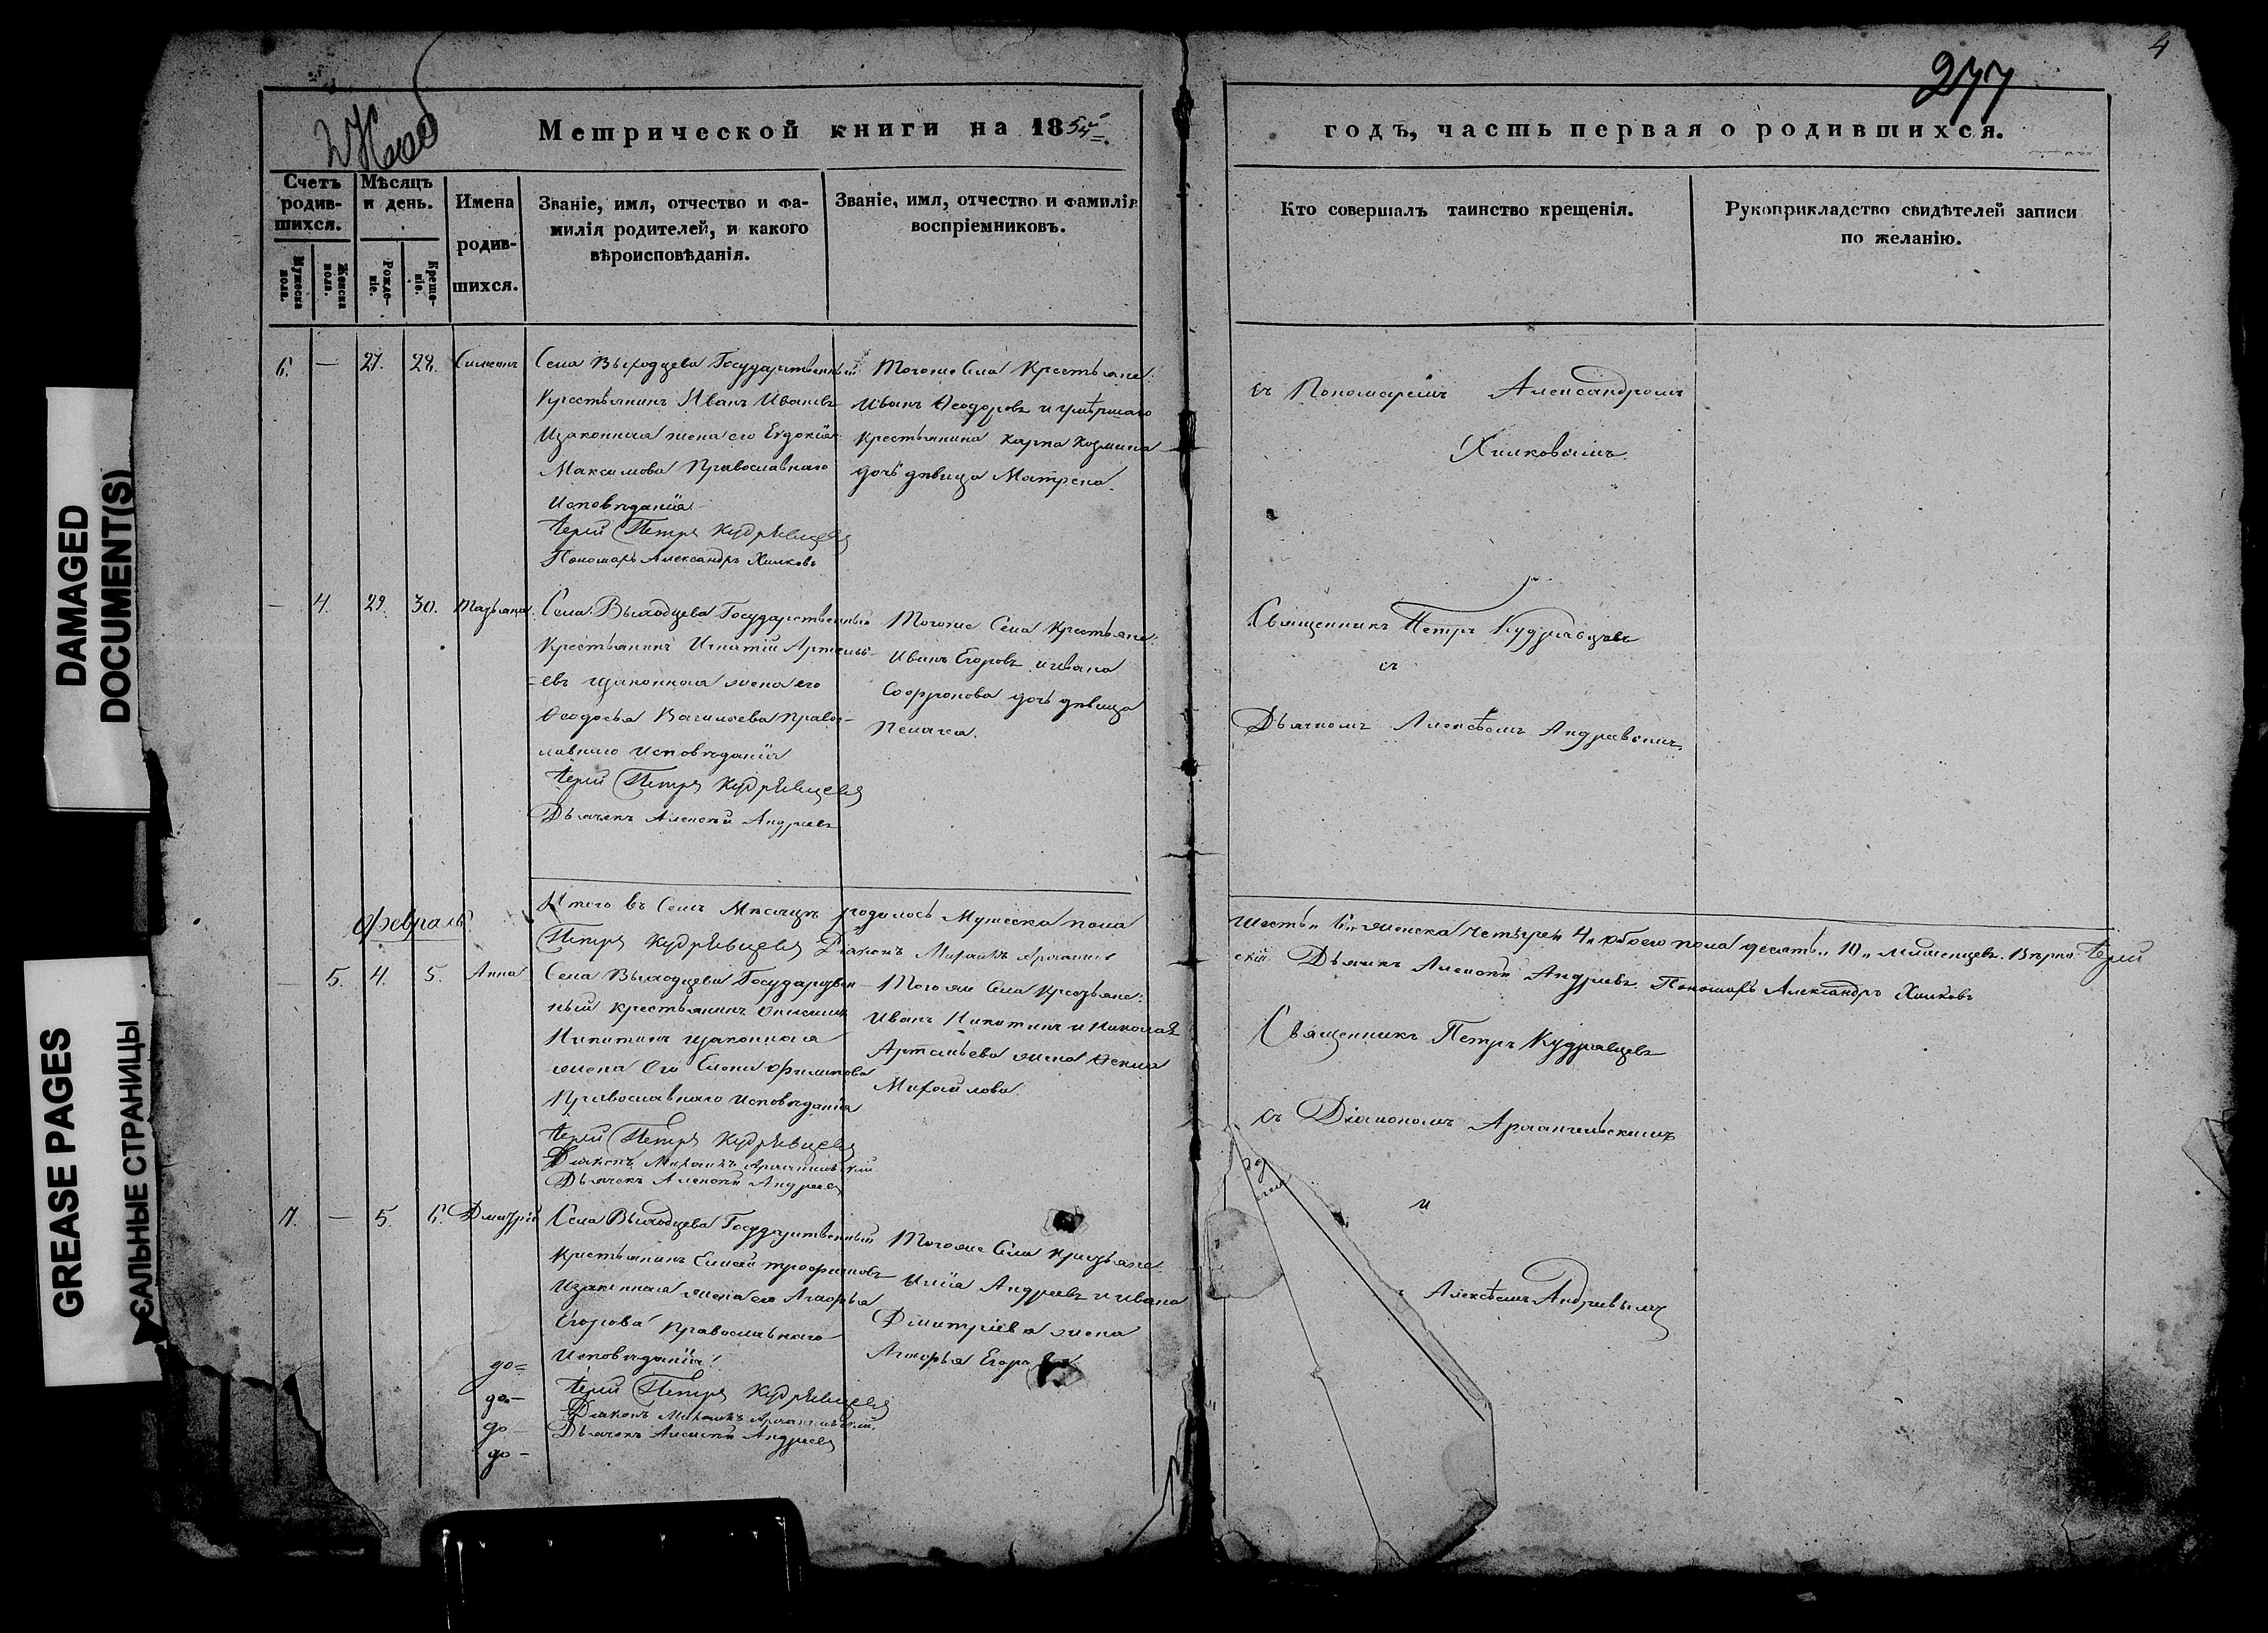 DAMAGED
DOCUMENT(S)
GREASE PAGES
САЛЬНЫЕ СТРАНИЦЫ
4
277
Метрической книги на 1854
годъ, часть первая о родившихся.
Счетъ родив-шихся.
Мужеска пола.
Женска пола.
Мѣсяцъ и день.
Рожде-ніе.
Креще-ніе.
Имена родив-шихся.
Званіе, имя, отчество и фа-
милія родителей, и какого
вѣроисповѣданія.
Званіе, имя, отчество и фамилія
воспріемниковъ.
Кто совершалъ таинство крещенія.
Рукоприкладство свидѣтелей записи
по желанію.
6. — 27. 28. Симеонъ
Села Выходцева Государственный
Крестьянинъ Иванъ Ивановъ
Изаконная жена его Евдокія
Максимова Православнаго
Исповѣданія
Іерей Петръ Кудрявцевъ
Пономарь Александръ Хилковъ
Тогоже Села Крестьяне:
Иванъ Ѳеодоровъ и умѣршаго
Крестьянина Карпа Козмина
дочь дѣвица Матрена.
съ Пономаремъ Александромъ
Хилковымъ.
— 4. 29. 30. Татьяна
Села Выходцева Государственный
Крестьянинъ Игнатій Артемь-
евъ изаконная жена его
Ѳеодосья Васильева Правос-
лавнаго Исповѣданія
Іерей Петръ Кудрявцевъ
Дьячекъ Алексѣй Андреевъ
Тогоже Села Крестьяне:
Иванъ Егоровъ и Ивана
Софронова дочь дѣвица
Пелагея.
Священникъ Петръ Кудрявцевъ
съ
Дьячкомъ Алексѣемъ Андреевымъ
Итого въ Семъ Мѣсяцѣ родилось Мужеска пола
шесть „6„ женска четыре „4„ обоего пола десять „10„ младенцевъ. Вѣрно: Іерей
Петръ Кудрявцевъ Діаконъ Михаилъ Архангель
скій Дьячекъ Алексѣй Андреевъ. Пономарь Александръ Хилковъ
Февраль
— 5. 4. 5. Анна
Села Выходцева Государствен-
ный крестьянинъ
Никитинъ изаконная
жена его Елена Филипова
Православнаго Исповѣданія
Іерей Петръ Кудрявцевъ
Діаконъ Михаилъ Архангельскій
Дьячекъ Алексѣй Андреевъ
Тогоже Села Крестьяне:
Иванъ Никитинъ и Николая
Артемьева жена Ѳекла
Михайлова.
Священникъ Петръ Кудрявцевъ
съ Діакономъ Архангельскимъ
и
Алексѣемъ Андреевымъ
7. — 5. 6. Дмитрій
Села Выходцева Государственный
Крестьянинъ Елисей Трофимовъ
Изаконная жена его Агафья
Егорова Православнаго
Исповѣданія
Іерей Петръ Кудрявцевъ
Діаконъ Михаилъ Архангельскій
Дьячекъ Алексѣй Андреевъ
Тогоже Села Крестьяне:
Илія Андреевъ и Ивана
Димитріева жена
Агафья Егорова
до=
до-
до-
до-